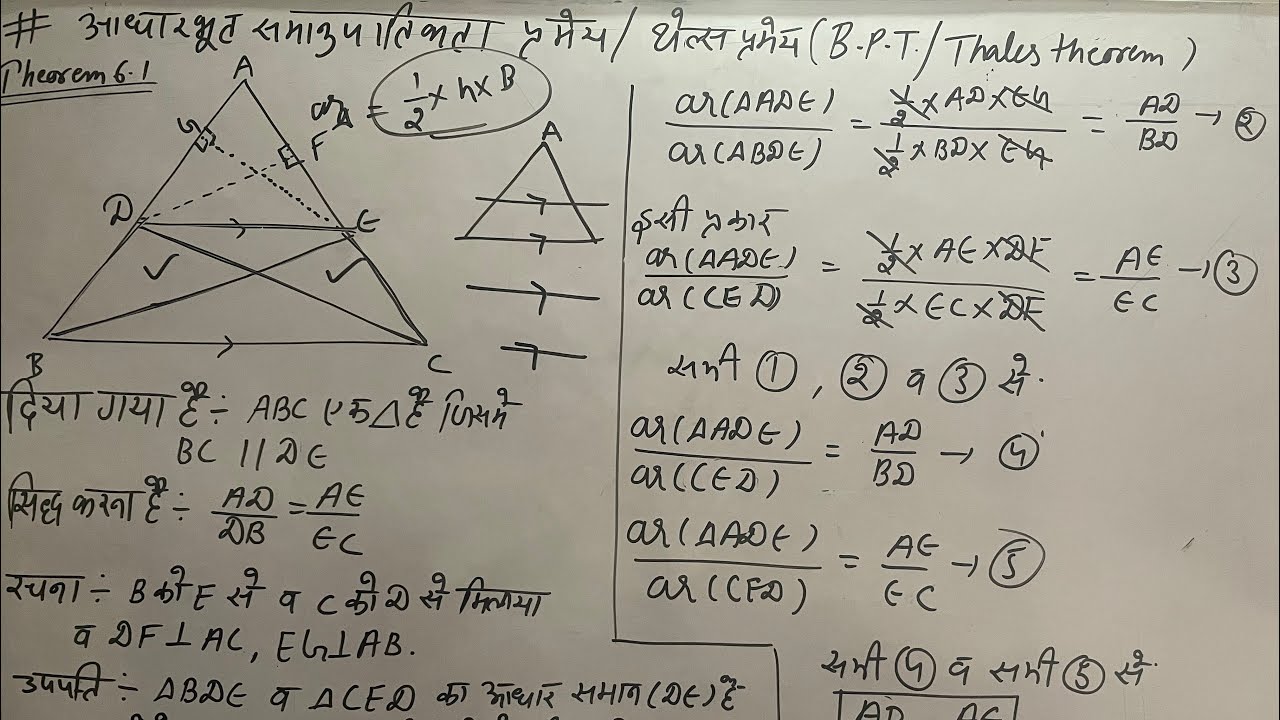 # आधारभूत समानुपातिकता प्रमेय / थेल्स प्रमेय (B.P.T./Thales theorem)
Theorem 6.1
A
ar Δ = 1/2 × h × B
G
F
D
E
B
C
A
दिया गया है ÷ ABC एक Δ है जिसमें
BC // DE
सिद्ध करना है ÷ AD/DB = AE/EC
रचना ÷ B को E से व C को D से मिलाया
व DF ⊥ AC, EG ⊥ AB.
उपपति ÷ ΔBDE व ΔCED का आधार समान (DE) है
ar(ΔADE)/ar(ΔBDE) = 1/2 × AD × EG / 1/2 × BD × EG = AD/BD → ②
इसी प्रकार
ar(ΔADE)/ar(CED) = 1/2 × AE × DF / 1/2 × EC × DF = AE/EC → ③
समी ①, ② व ③ से.
ar(ΔADE)/ar(CED) = AD/BD → ④
ar(ΔADE)/ar(CED) = AE/EC → ⑤
समी ④ व समी ⑤ से.
AD AE